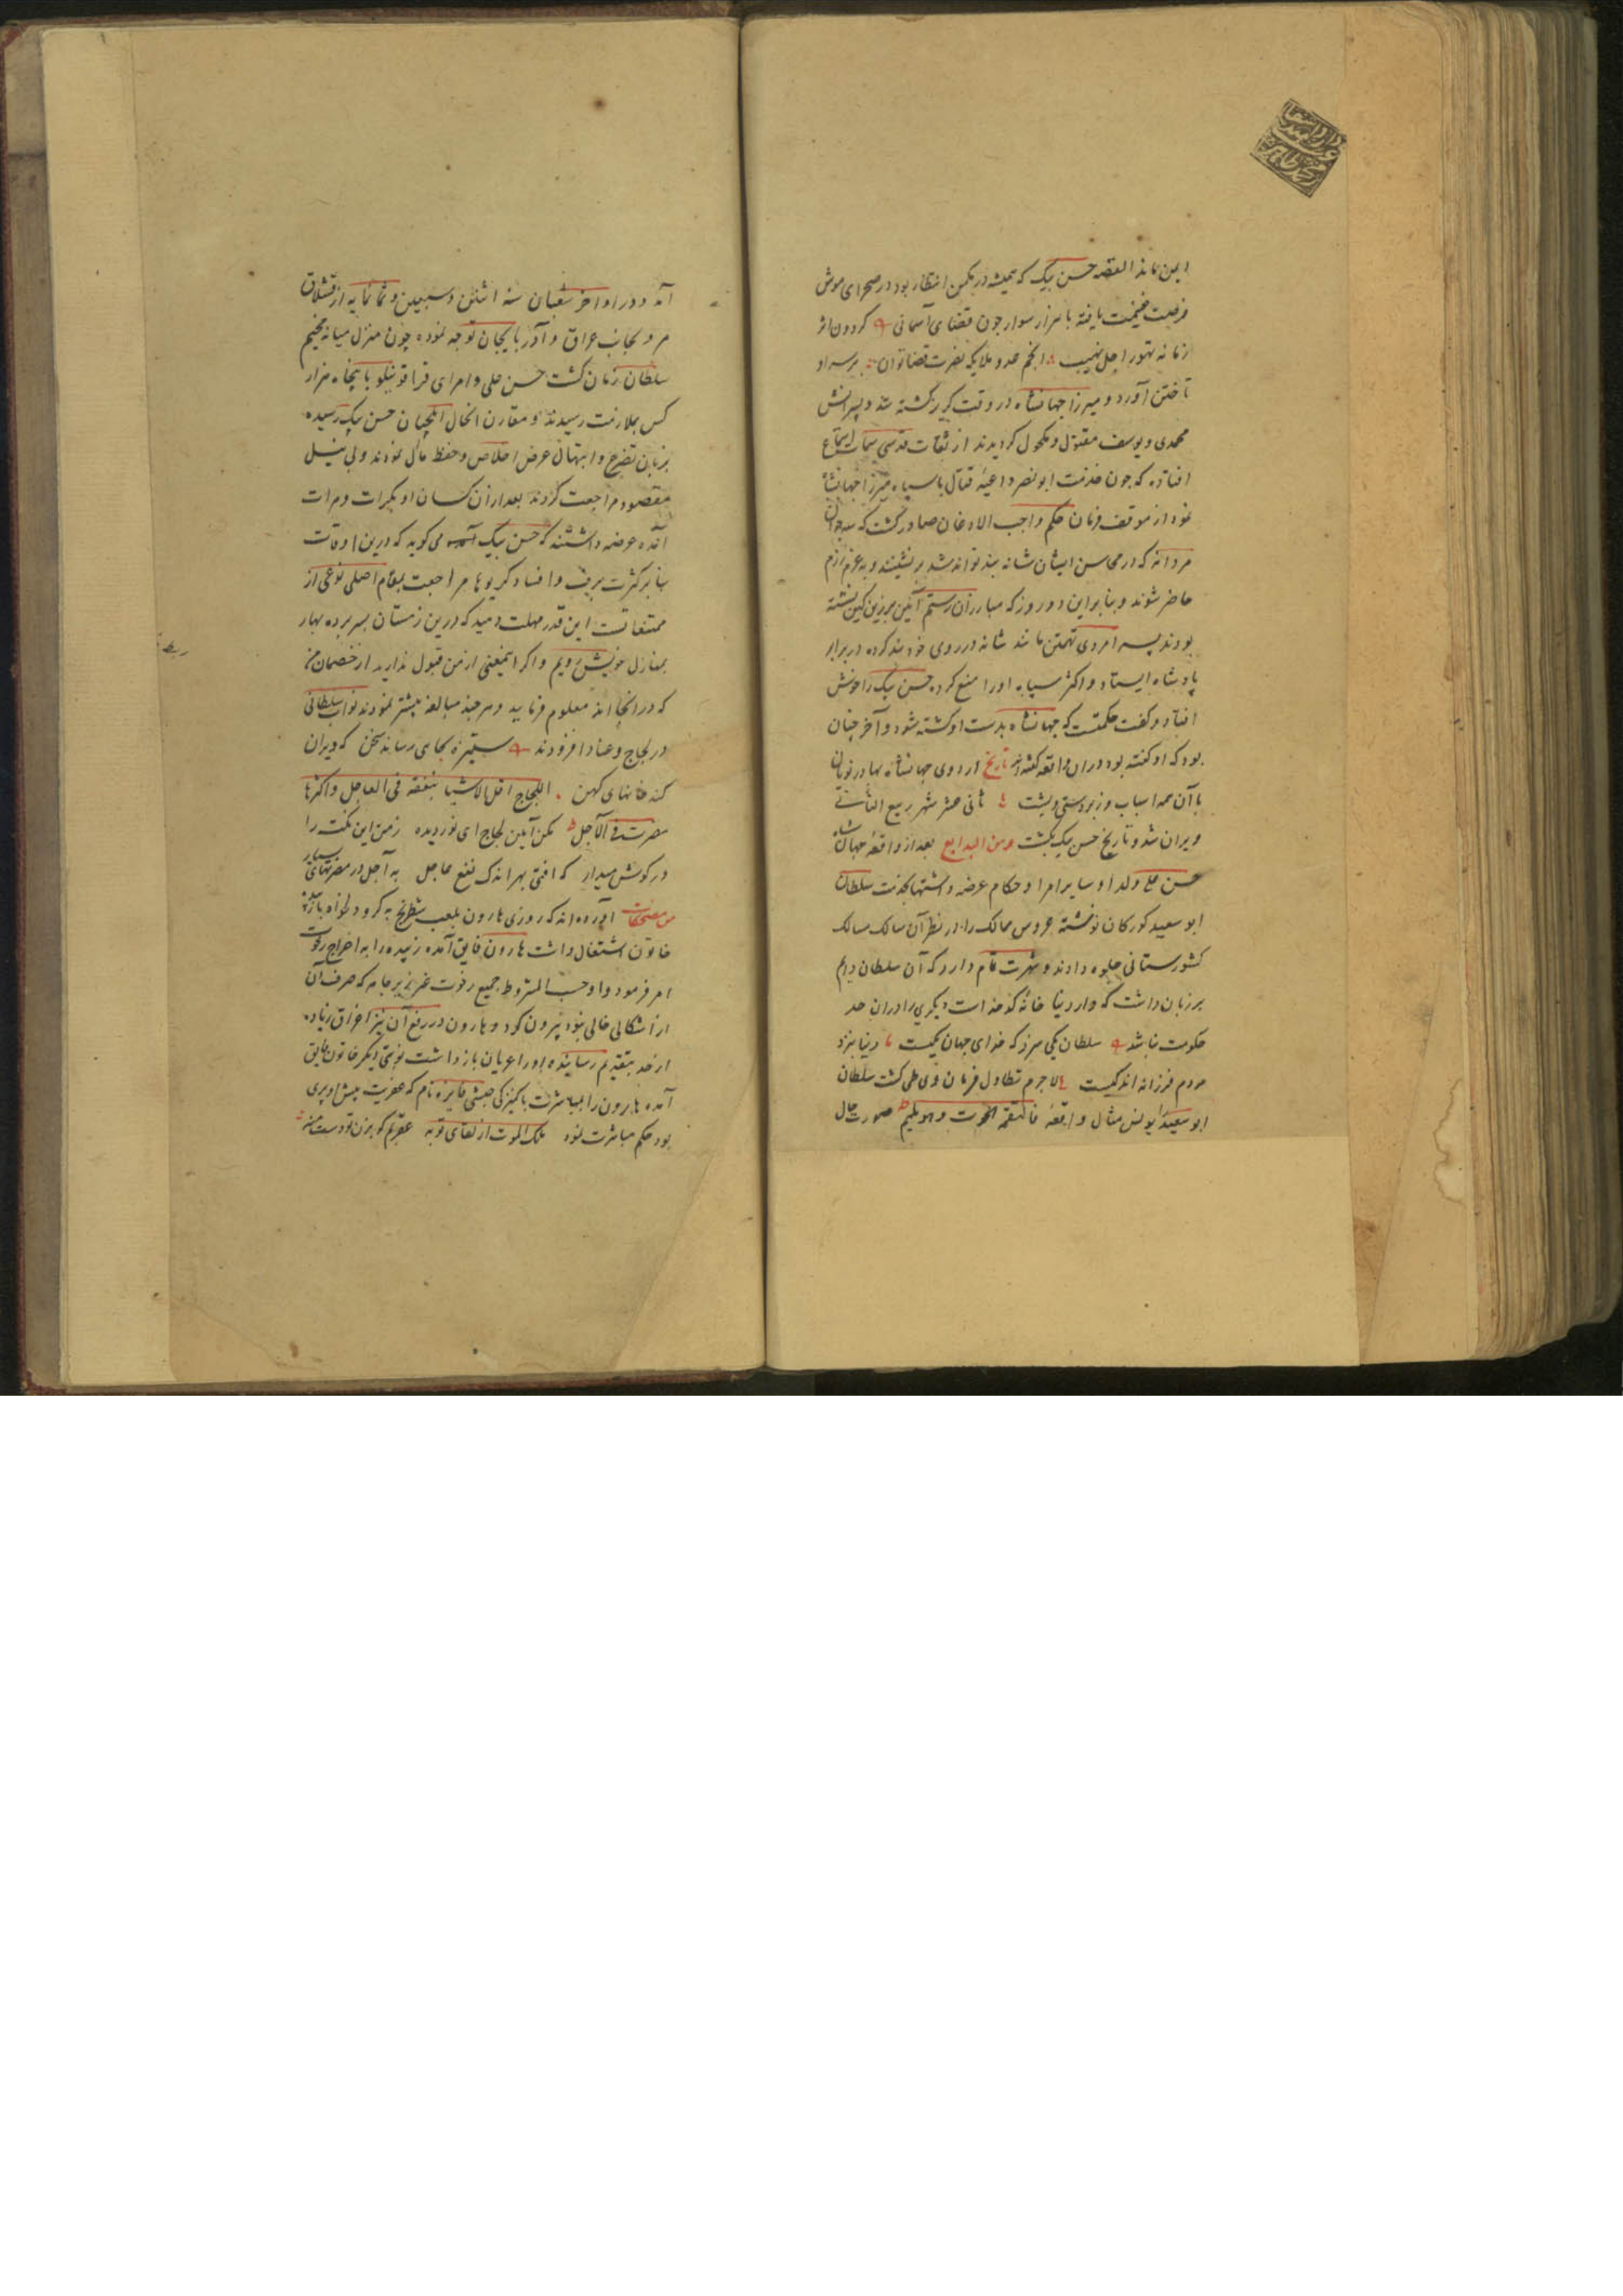 این نماند القصه حسن بیک که همیشه در مکمن انتظار بود در صحرای موش
فرصت غنیمت یافته با هزار سوار چون قضای آسمانی گردون اثر
زمانه تهور اجل نهیب انجم عدد ملایکه نصرت قضا توان بر سر او
تاختن آورد و میرزا جهانشاه در وقت گریز کشته شد و پسرانش
محمدی و یوسف مقتول و مکحول گردیدند از ثقات قدسی سمات استماع
افتاده که چون حضرت ابو نصر داعیه قتال با سپاه میرزا جهانشاه
نمود از موقف فرمان حکم واجب الاذعان صادر گشت که
مردانه که در محاسن ایشان شانه بند تواند شد بر نشینند و به عزم رزم
حاضر شوند و بنابراین دو روز که مبارزان رستم آئین بر زین کین نشسته
بودند پسر امردی تهمتن مانند شانه در روی خود بند کرده در برابر
پادشاه ایستاد و اکثر سپاه او را منع کرد حسن بیک را خوش
افتاد و گفت حکمتست که جهانشاه بدست او کشته شود و آخر چنان
بود که او گفته بود در آن واقعه گفته‌اند تاریخ اردوی جهانشاه بهادر نویان
با آن همه اسباب و زبردستی و پشت ثانی عشر شهر ربیع الثانی
ویران شد و تاریخ حسن بیک بکشت ومن البدایع بعد از واقعه جهان شاه
حسن علی ولد او و سایر امرا و حکام عرضه داشتها بخدمت سلطان
ابو سعید کورکان نوشته عروس ممالک را در نظر آن سالک مسالک
کشورستانی جلوه دادند و شهرت تمام دارد که آن سلطان دایم
بر زبان داشت که دار دنیا خانه کدخداست دیگری را در آن حد
حکومت نباشد سلطان یکی سزد که خدای جهان یکیست دنیا بنزد
مردم فرزانه اندکیست لاجرم تطاول فرمان وی طی گشت سلطان
ابو سعید یونس مثال واقعه فالتقمه الحوت وهو ملیم صورت حال
آمد و در اواخر شعبان سنه اثنی و سبعین و ثمانمایه از قشلاق
مرو بجانب عراق و آذربایجان توجه نموده چون منزل میانه مخیم
سلطان زمان گشت حسن علی و امرای قراقوینلو با پنجاه هزار
کس بملازمت رسیدند و مقارن الحال ایلچیان حسن بیک رسیده
بزبان تضرع و ابتهال عرض اخلاص و حفظ مآل نمودند و بی نیل
مقصود مراجعت کردند بعد از آن کسان او بکرات و مرات
آمده عرضه داشتند که حسن بیک می گوید که درین اوقات
بنا بر کثرت برف و انسداد گریوها مراجعت بمقام اصلی نوعی از
ممتنعاتست این قدر مهلت دهید که درین زمستان بسر برده بهار
بمنازل خویش رویم و اگر اینمعنی از من قبول ندارید از خصمان من
که در آنجا اند معلوم فرمایید و هر چند مبالغه بیشتر نمودند نواب سلطانی
در لجاج و عناد افزودند ستیزه بجای رساند سخن که ویران
کند خانهای کهن اللجاج اقل الاشیاء منفعة فی العاجل واکثرها
مضرت فی الآجل مکن آیین لجاج ای نور دیده زمن این نکت را
در گوش میدار که افتی بهر اندک نفع عاجل به آجل در مضرتهای بسیار
من مضحکات آورده اند که روزی هارون بلعب شطرنج به گرو دلخواه با زبیده
خاتون اشتغال داشت هارون فایق آمده زبیده را به اخراج رخوت
امر فرمود و او حسب المشروط جمیع رخوت غیر زیر جامه که صرف آن
از اشکالی خالی نبود بیرون کرد و هارون در رفع آن نیز اغراق زیاده
از حد بتقدیم رسانیده او را عریان بازداشت نوبتی دیگر خاتون فایق
آمده هارون را بمباشرت با کنیزکی حبشی فایزه نام که عفریت پیش او پری
بود حکم مباشرت نمود ملک الموت از لقای تو به عقربم گو بزن تو دست منه
ربط